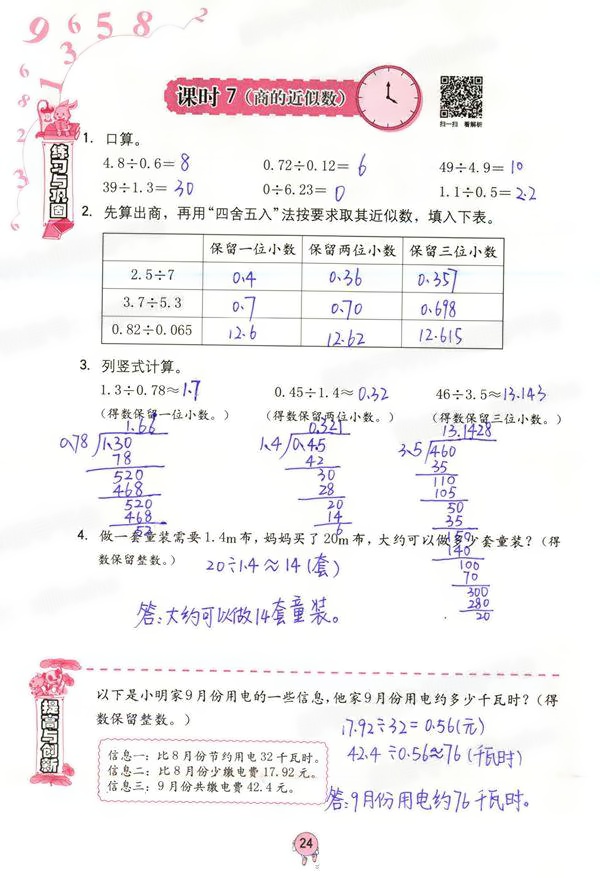 9 6 5 8 2
课时 7（商的近似数）
扫一扫 看解析
练习与巩固
1. 口算。
4.8÷0.6= 8 0.72÷0.12= 6 49÷4.9= 10
39÷1.3= 30 0÷6.23= 0 1.1÷0.5= 2.2
2. 先算出商，再用“四舍五入”法按要求取其近似数，填入下表。
保留一位小数 保留两位小数 保留三位小数
2.5÷7 0.4 0.36 0.357
3.7÷5.3 0.7 0.70 0.698
0.82÷0.065 12.6 12.62 12.615
3. 列竖式计算。
1.3÷0.78≈ 1.7 0.45÷1.4≈ 0.32 46÷3.5≈ 13.143
（得数保留一位小数。） （得数保留两位小数。） （得数保留三位小数。）
1.66 0.321 13.1428
0.78 1.30 1.4 0.4.5 3.5 460
78 42 35
520 30 110
468 28 105
520 20 50
468 14 35
52 6 150
140
100
70
300
280
20
4. 做一套童装需要1.4m布，妈妈买了20m布，大约可以做多少套童装？（得
数保留整数。） 20÷1.4≈14(套)
答：大约可以做14套童装。
提高与创新
以下是小明家9月份用电的一些信息，他家9月份用电约多少千瓦时？（得
数保留整数。）
17.92÷32=0.56(元)
42.4÷0.56≈76(千瓦时)
信息一：比8月份节约用电32千瓦时。
信息二：比8月份少缴电费17.92元。
信息三：9月份共缴电费42.4元。
答：9月份用电约76千瓦时。
24